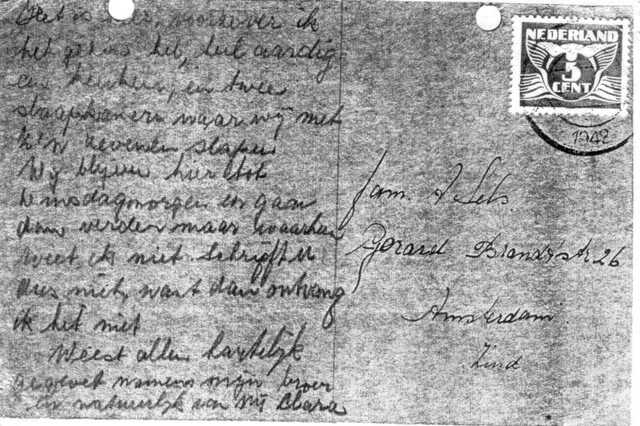 Het is hier, voorzover ik
het gezien heb, heel aardig
en keuken, en twee
slaapkamers waar wij met
z'n zevenen slapen
Wij blijven hier tot
Dinsdagmorgen en gaan
dan verder maar waarheen
weet ik niet. Schrijft U
dus niet, want dan ontvang
ik het niet
Weest allen hartelijk
gegroet namens mijn broer
en natuurlijk van mij Clara
NEDERLAND
5
CENT
1942
Fam. A Lels.
Gerard Brandtstr. 26
Amsterdam
Zuid